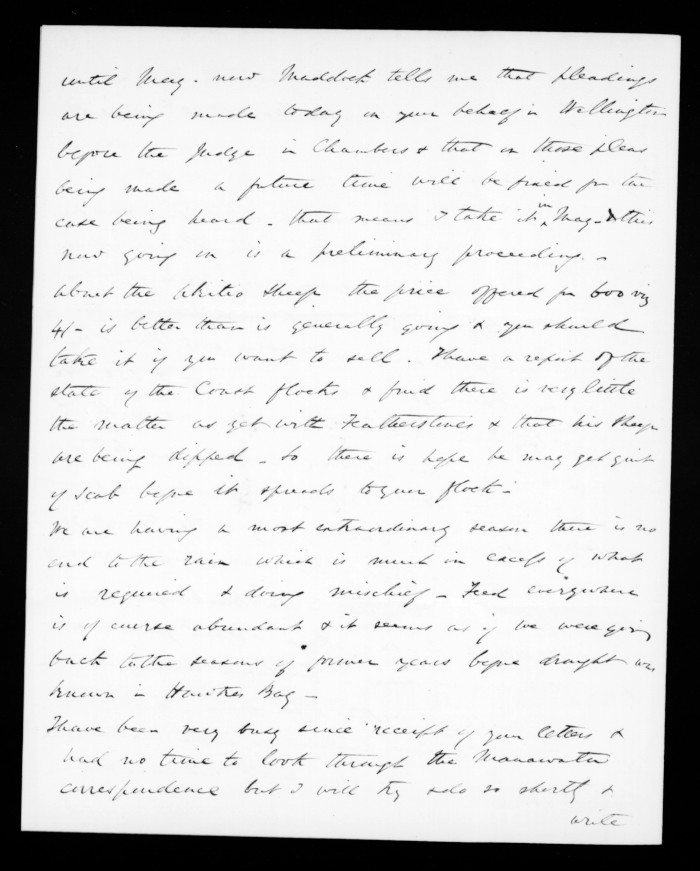 until May. now Maddock tells me that pleadings
are being made today on your behalf in Wellington
before the Judge in Chambers & that on those pleas
being made a future time will be fixed for the
case being heard – that means I take it in May – & this
now going on is a preliminary proceeding. –
About the Akitio sheep the price offered for 600 viz
4/- is better than is generally going & you should
take it if you want to sell. I have a report of the
state of the Coast flocks & find there is very little
the matter as yet with Featherstones & that his sheep
are being dipped – so there is hope he may get quit
of scab before it spreads to your flock –
We are having a most extraordinary season there is no
end to the rain which is much in excess of what
is required & doing mischief – Feed everywhere
is of course abundant & it seems as if we were going
back to the seasons of former years before drought was
known in Hawkes Bay –
I have been very busy since receipt of your letters &
had no time to look through the Manawatu
correspondence but I will try & do so shortly &
write